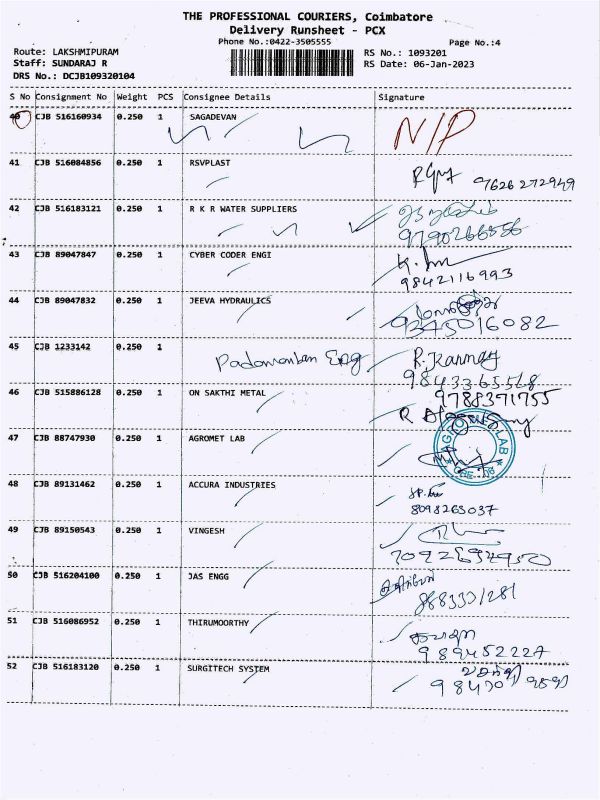 THE PROFESSIONAL COURIERS, Coimbatore
Delivery Runsheet - PCX
Phone No.:0422-3505555
Page No.:4
Route: LAKSHMIPURAM
RS No.: 1093201
Staff: SUNDARAJ R
RS Date: 06-Jan-2023
DRS No.: DCJB109320104
S No Consignment No Weight PCS Consignee Details Signature
40 CJB 516160934 0.250 1 SAGADEVAN N/P
41 CJB 516084856 0.250 1 RSVPLAST
9626272949
42 CJB 516183121 0.250 1 R K R WATER SUPPLIERS
9790266556
43 CJB 89047847 0.250 1 CYBER CODER ENGI
9842116993
44 CJB 89047832 0.250 1 JEEVA HYDRAULICS
9345016082
45 CJB 1233142 0.250 1
Eng
9843365568
9788371755
46 CJB 515886128 0.250 1 ON SAKTHI METAL
47 CJB 88747930 0.250 1 AGROMET LAB
48 CJB 89131462 0.250 1 ACCURA INDUSTRIES
8098265037
49 CJB 89150543 0.250 1 VINGESH
50 CJB 516204100 0.250 1 JAS ENGG
51 CJB 516086952 0.250 1 THIRUMOORTHY
52 CJB 516183120 0.250 1 SURGITECH SYSTEM